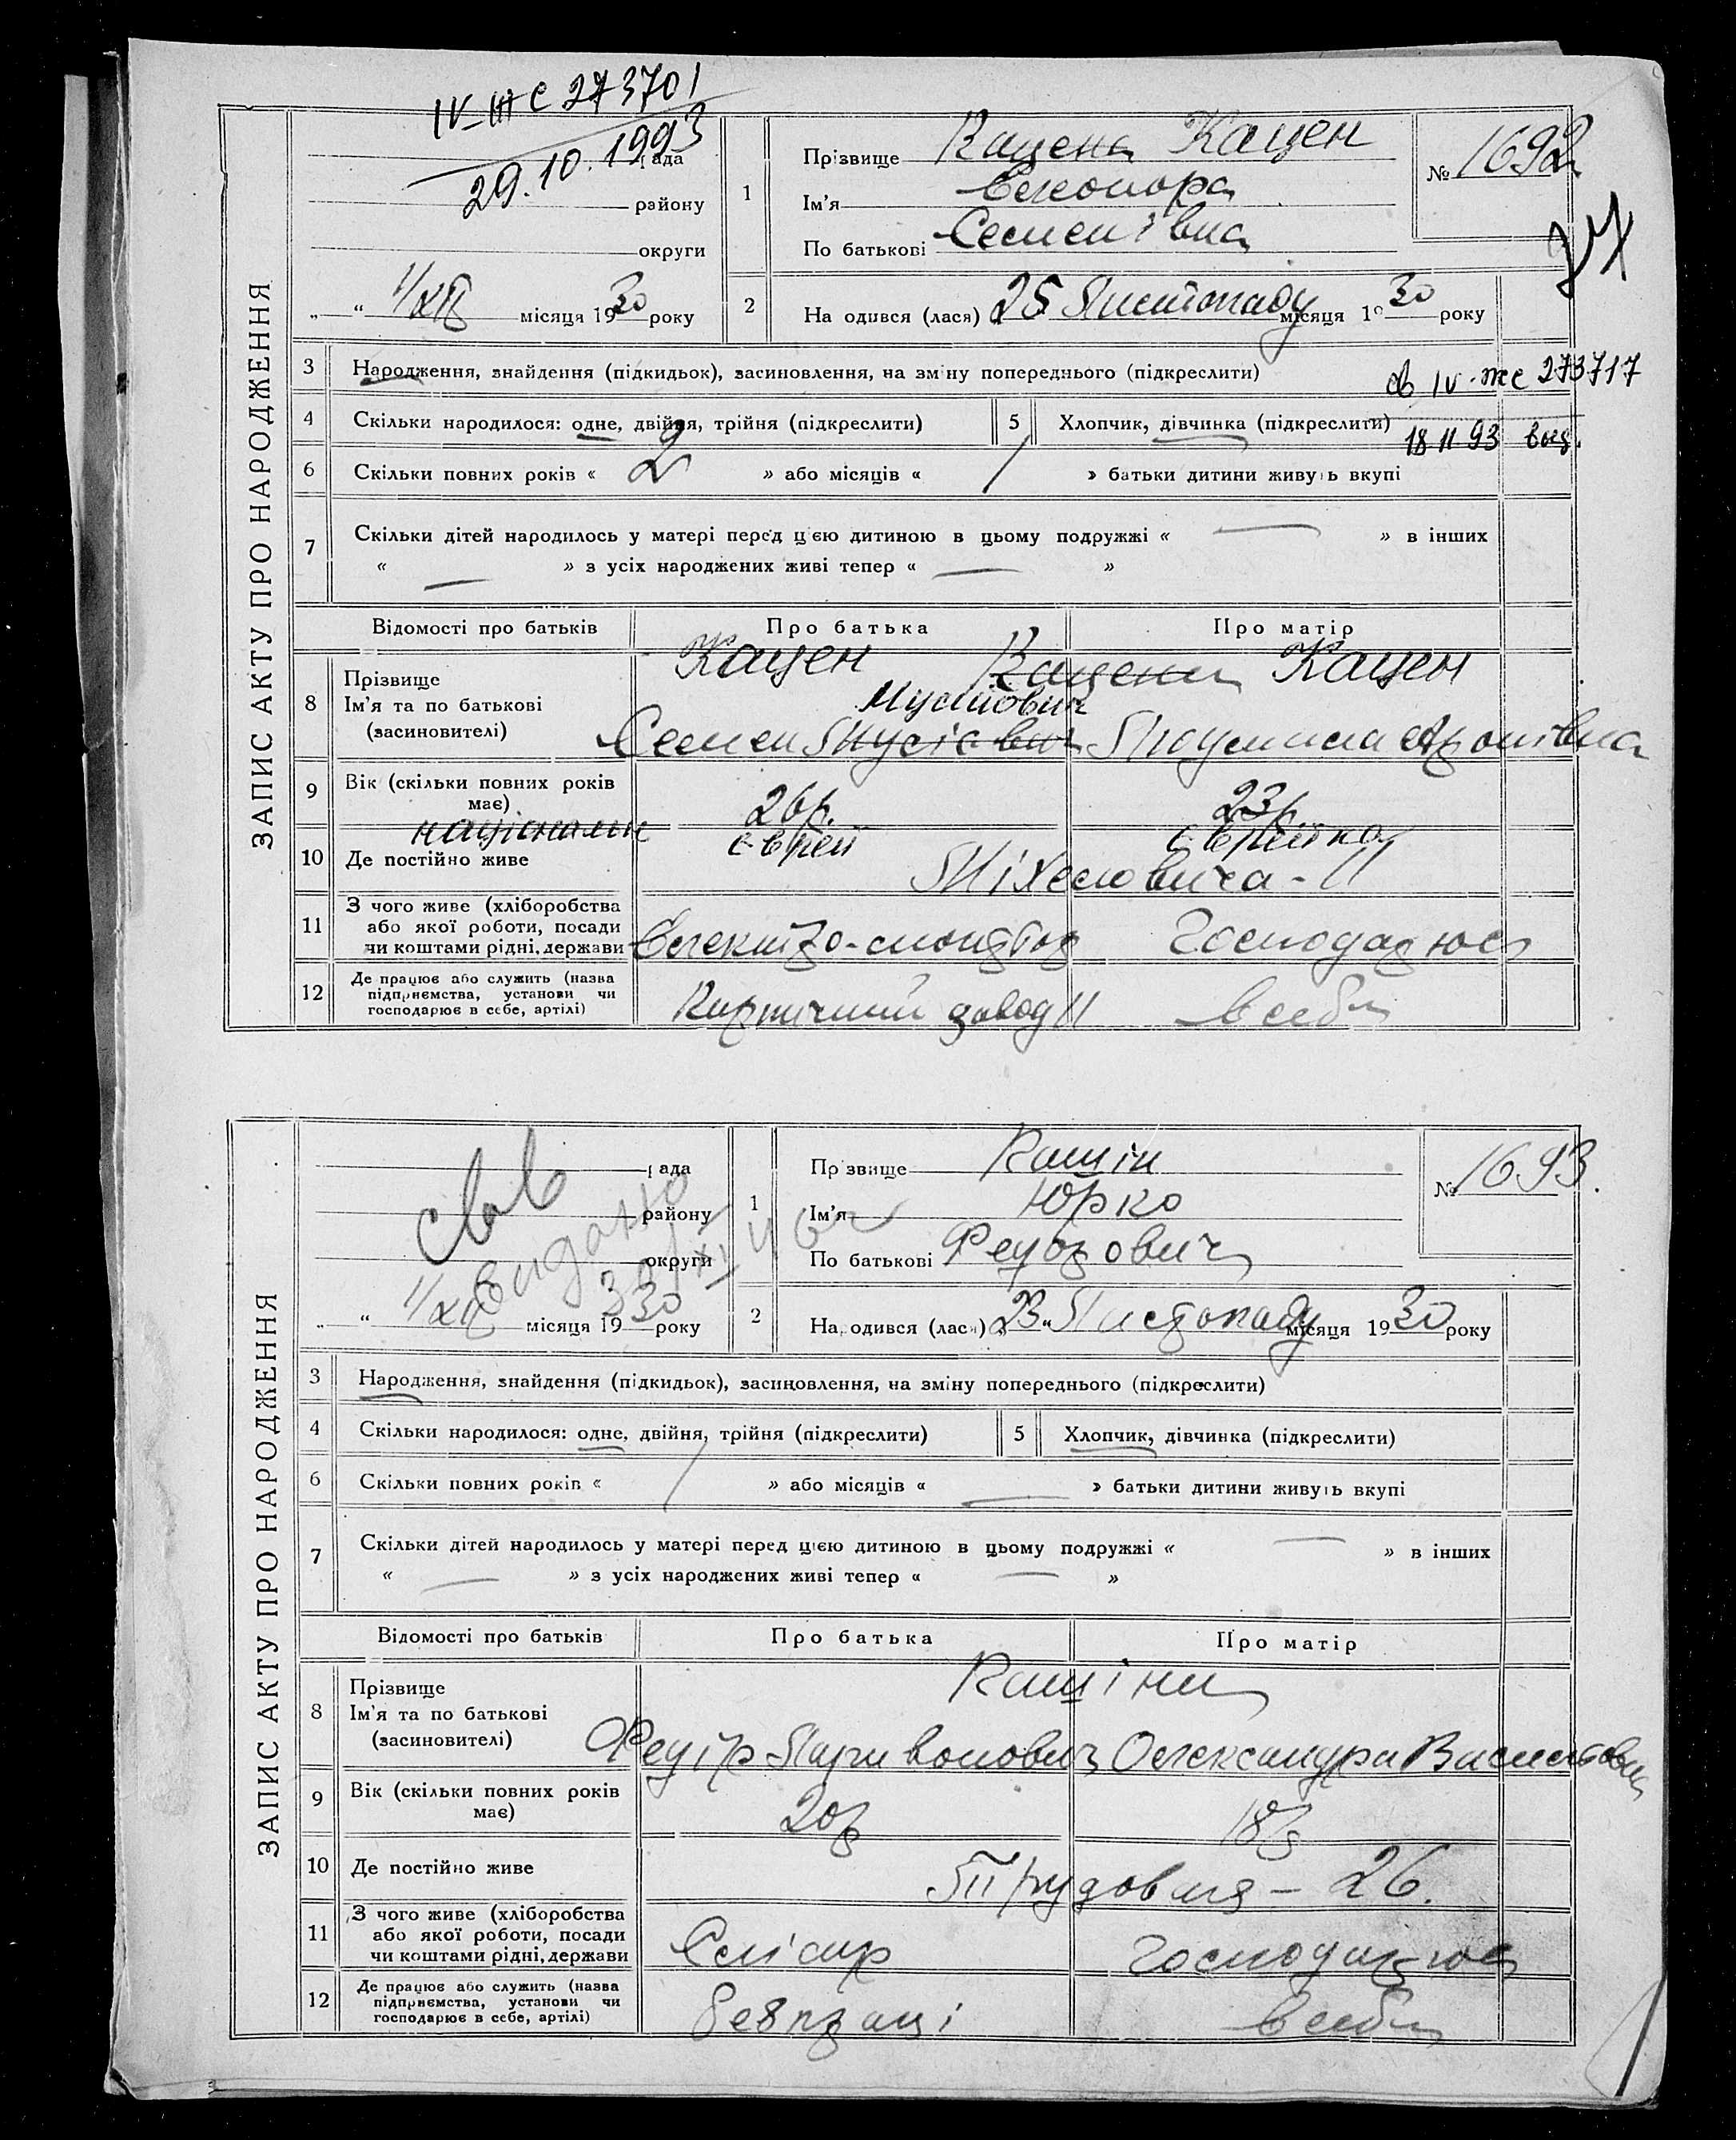 ЗАПИС АКТУ ПРО НАРОДЖЕННЯ
IV-ЖС 273701
29.10.1993
рада
району
округи
„ “ 1/XII місяця 1930 року
1
Прізвище Кацена Кацен
Ім'я Елеонора
По батькові Семенівна
№ 1692
2
На одився (лася) 25 Листопаду місяця 1930 року
3 Народження, знайдення (підкидьок), засиновлення, на зміну попереднього (підкреслити)
IV-ЖС 273717
4 Скільки народилося: одне, двійня, трійня (підкреслити)
5 Хлопчик, дівчинка (підкреслити)
18 11 93
6 Скільки повних років « 2 » або місяців « » батьки дитини живуть вкупі
7 Скільки дітей народилось у матері перед цією дитиною в цьому подружжі « — » в інших
« — » з усіх народжених живі тепер « — »
Відомості про батьків Про батька Про матір
8 Прізвище
Ім'я та по батькові
(засиновителі)
Кацен Кацени Кацен
Мусійович
Семен Мусієвич Людмила Аронівна
9 Вік (скільки повних років
має)
26р. 23р.
національн єврей єврейка
10 Де постійно живе
11 З чого живе (хліборобства
або якої роботи, посади
чи коштами рідні, держави
Електро-монтьор Господарює
12 Де працює або служить (назва
підприємства, установи чи
господарює в себе, артілі)
Кирпичний завод 11 в себе
ЗАПИС АКТУ ПРО НАРОДЖЕННЯ
рада
району
округи
видано
„ “ 1/XII місяця 1930 року
1
Пр звище Кашін
Ім'я Юрко
По батькові Федорович
№ 1693.
2
На одився (лася) 23 „ Листопаду місяця 1930 року
3 Народження, знайдення (підкидьок), засиновлення, на зміну попереднього (підкреслити)
4 Скільки народилося: одне, двійня, трійня (підкреслити)
5 Хлопчик, дівчинка (підкреслити)
6 Скільки повних років « » або місяців « — » батьки дитини живуть вкупі
7 Скільки дітей народилось у матері перед цією дитиною в цьому подружжі « — » в інших
« — » з усіх народжених живі тепер « — »
Відомості про батьків Про батька Про матір
8 Прізвище
Ім'я та по батькові
(засиновителі)
Кашіни
Федір Олександра Василівна
9 Вік (скільки повних років
має)
20р 18р
10 Де постійно живе
Трудовая – 26.
11 З чого живе (хліборобства
або якої роботи, посади
чи коштами рідні, держави
Слісар Господарює
12 Де працює або служить (назва
підприємства, установи чи
господарює в себе, артілі)
Безпраці в себе